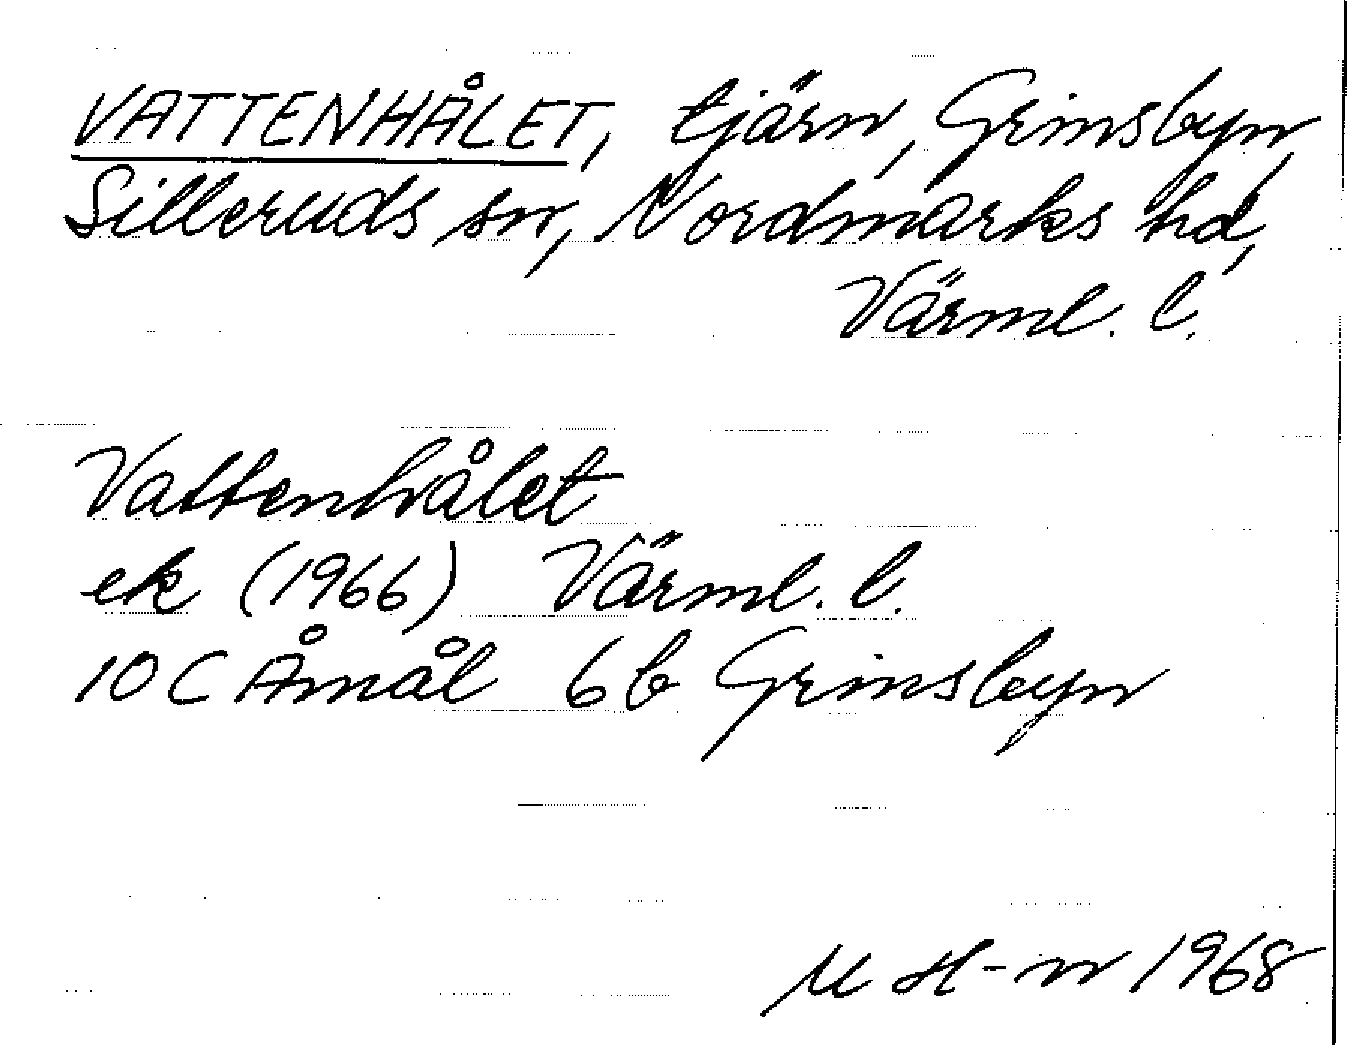 VATTENHÅLET, tjärn, Grinsbyn,
Silleruds sn, Nordmarks hd,
Värml. l.
Vattenhålet
ek (1966) Värml. l.
10 C Åmål 6b Grinsbyn
M H-n 1968